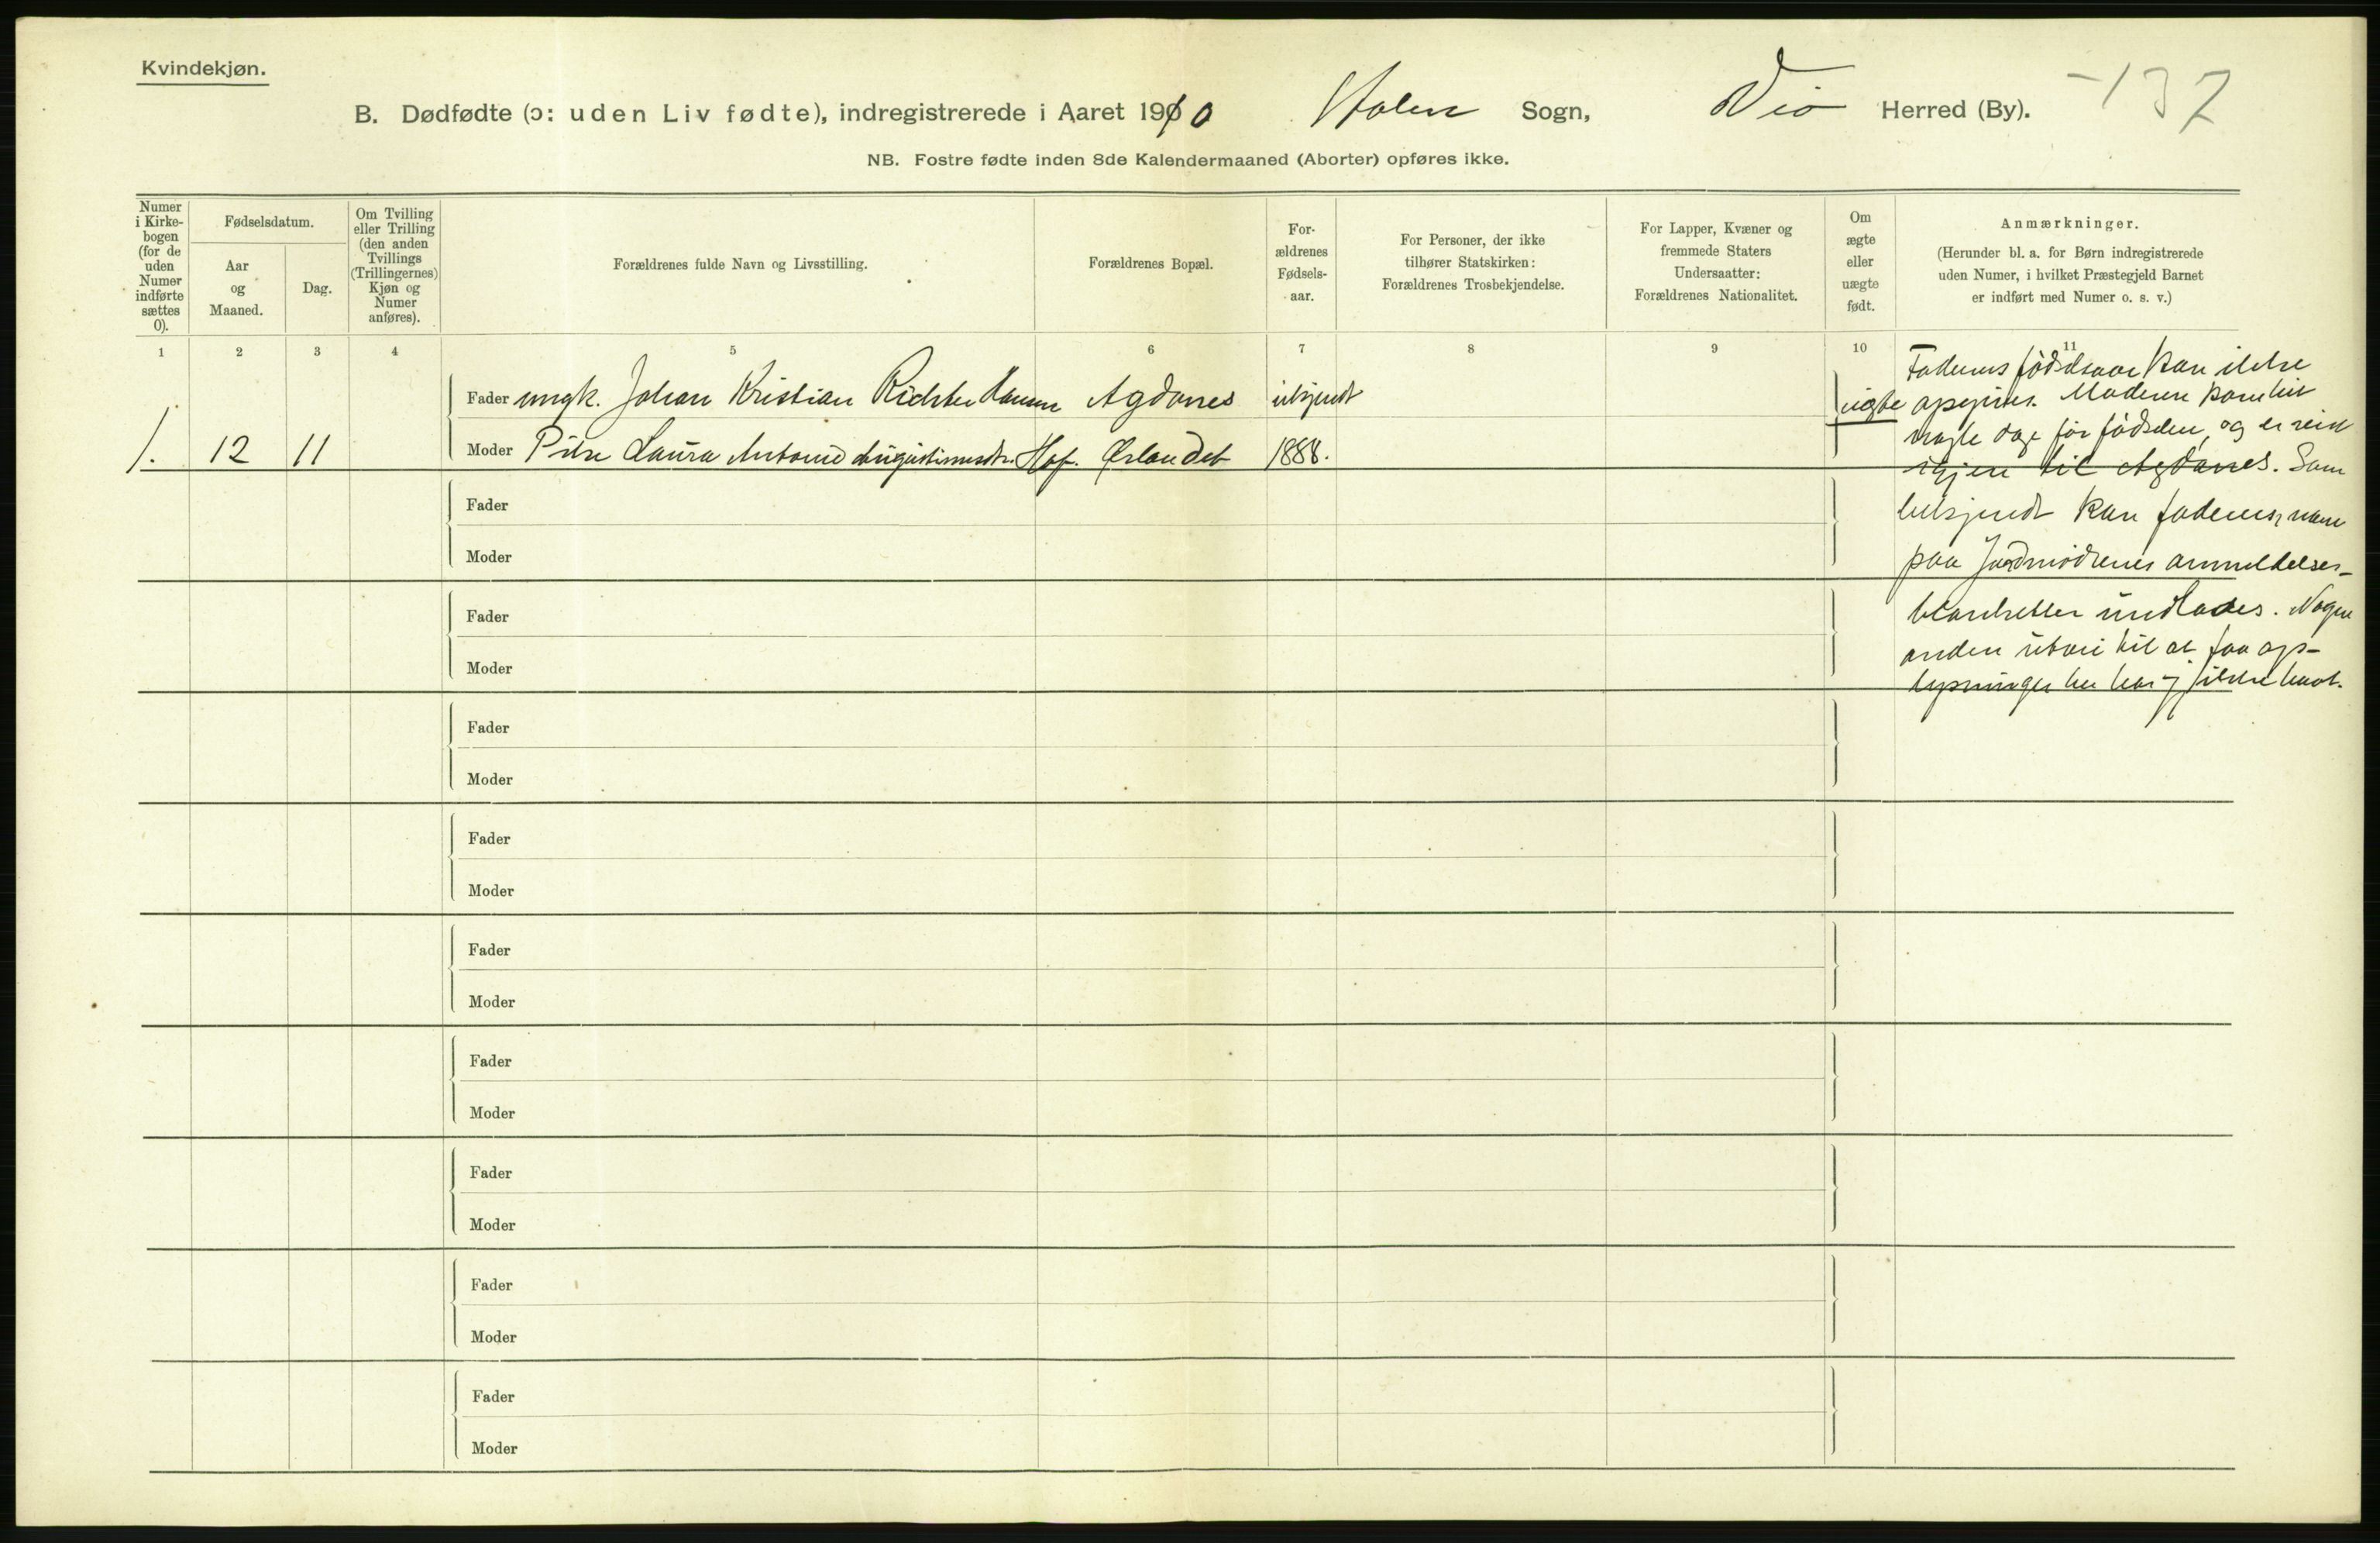 Kvindekjøn.
B. Dødfødte (ɔ: uden Liv fødte), indregistrerede i Aaret 1910 Stolen Sogn, Viø Herred (By). -137
NB. Fostre fødte inden 8de Kalendermaaned (Aborter) opføres ikke.
Numer i Kirke-bogen (for de uden Numer indførte sættes 0).
Fødselsdatum.
Aar og Maaned.
Dag.
Om Tvilling eller Trilling (den anden Tvillings (Trillingernes) Kjøn og Numer anføres).
Forældrenes fulde Navn og Livsstilling.
Forældrenes Bopæl.
For-ældrenes Fødsels-aar.
For Personer, der ikke tilhører Statskirken: Forældrenes Trosbekjendelse.
For Lapper, Kvæner og fremmede Staters Undersaatter: Forældrenes Nationalitet.
Om ægte eller uægte født.
Anmærkninger.
(Herunder bl. a. for Børn indregistrerede uden Numer, i hvilket Præstegjeld Barnet er indført med Numer o. s. v.)
1 2 3 4 5 6 7 8 9 10 11
Fader ungk. Johan Kristian Richter Hansen Agdanes ubkjendt uægte
1. 12 11 Moder Pike Laura Antonie Augustinusdtr. Hof. Ørlandet 1888.
Faderens fødselsaar kan ikke
opgives. Moderen kom hit
nogle dage før fødselen, og er reist
igjen til Agdanes. Som
bekjendt kan faderens navn
paa Jordmødrenes anmeldelses-
blanketter undlades. Nogen
anden utvei til at faa op-
lysninger her har j ikke havt.
Fader
Moder
Fader
Moder
Fader
Moder
Fader
Moder
Fader
Moder
Fader
Moder
Fader
Moder
Fader
Moder
Fader
Moder